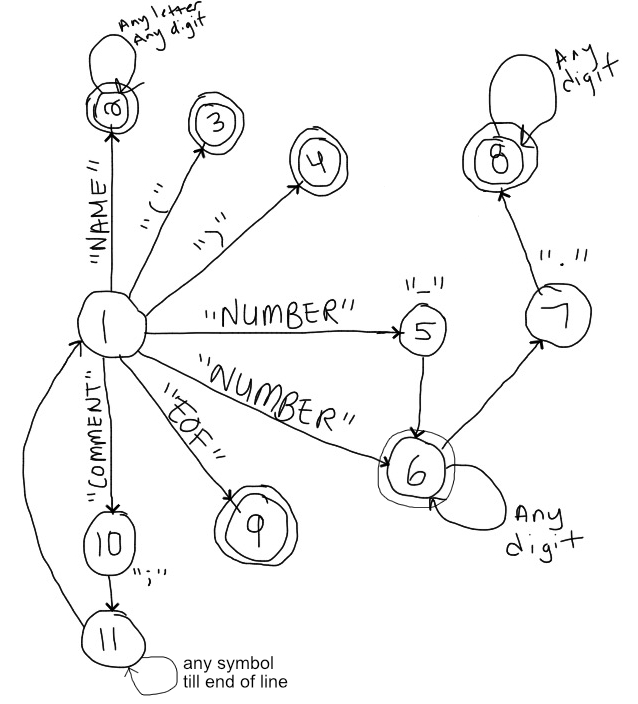 Any letter
Any digit
2
3
4
"NAME"
"("
")"
8
Any
digit
"."
"_"
1
"NUMBER"
5
7
"NUMBER"
"EOF"
"COMMENT"
6
Any
digit
9
10
";"
11
any symbol
till end of line